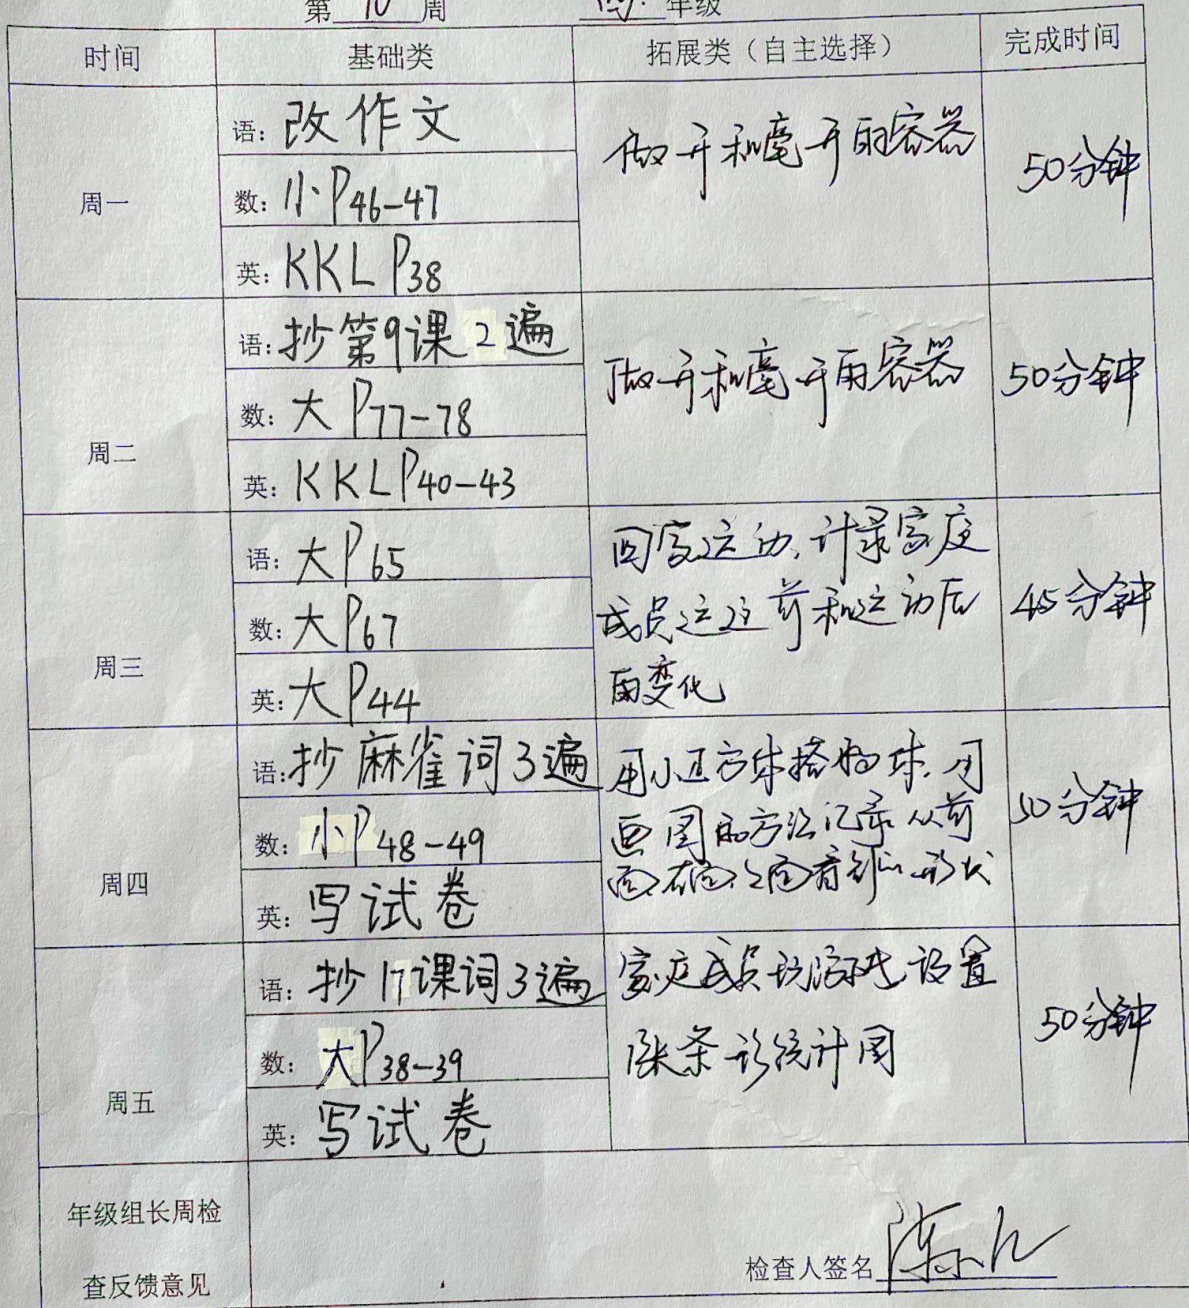 第 10 周 四 年级
时间 基础类 拓展类（自主选择） 完成时间
周一
语: 改作文
数: 小P46-47
英: KKL P38
做升和毫升的容器
50分钟
周二
语: 抄第9课2遍
数: 大P77-78
英: KKLP40-43
做升和毫升的容器
50分钟
周三
语: 大P65
数: 大P67
英: 大P44
回家运动,计录家庭
成员运动前和运动后
的变化
45分钟
周四
语: 抄麻雀词3遍
数: 小P48-49
英: 写试卷
用小正方体搭物体,用
画图的方法记录从前
面、右面、上面看到的形状
50分钟
周五
语: 抄17课词3遍
数: 大P38-39
英: 写试卷
家庭成员玩游戏,设置
张条形统计图
50分钟
年级组长周检
查反馈意见
检查人签名